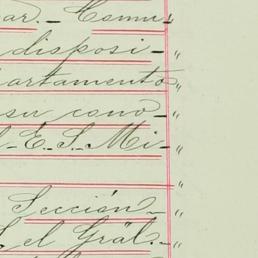 ar._ Comu-
disposi- "
partamento "
su cono- "
l. E. S. Mi- "
Sección_ "
S. el Gräl._ "